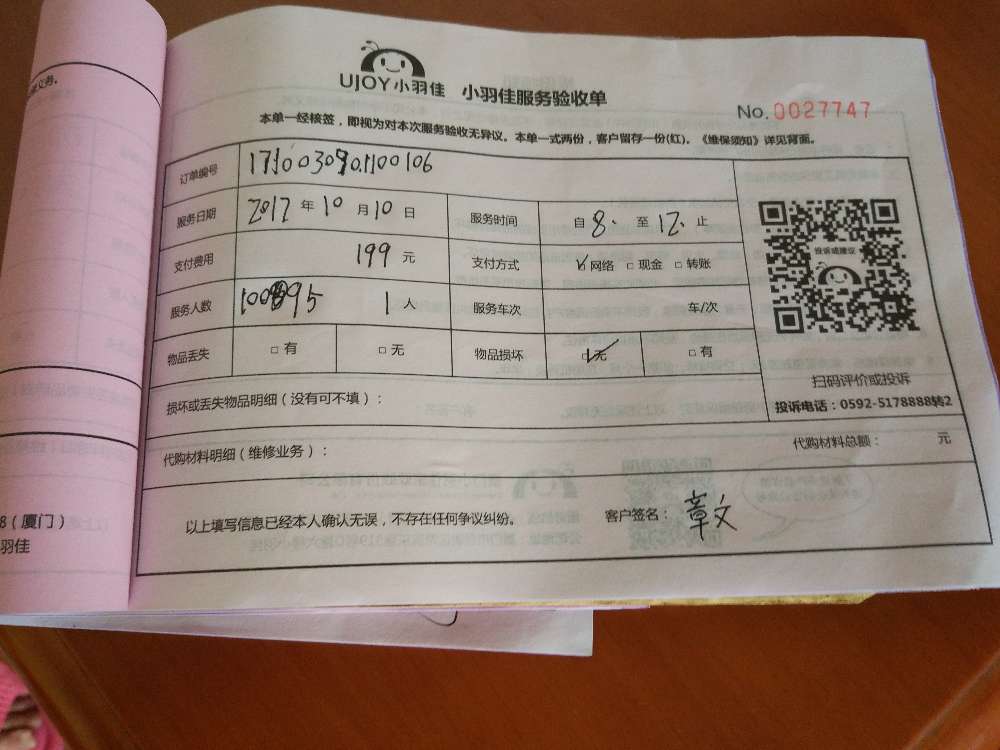 UJOY小羽佳 小羽佳服务验收单
No. 0027747
本单一经核签，即视为对本次服务验收无异议。本单一式两份，客户留存一份(红)。《维保须知》详见背面。
订单编号
服务日期 2017 年 10 月 10 日 服务时间 自 8. 至 12. 止
支付费用 199 元 支付方式 ☑网络 □现金 □转账
投诉或建议
服务人数 1 人 服务车次 车/次
物品丢失 □有 □无 物品损坏 ☑无 □有
扫码评价或投诉
损坏或丢失物品明细（没有可不填）：
投诉电话：0592-5178888转2
代购材料明细（维修业务）： 代购材料总额： 元
以上填写信息已经本人确认无误，不存在任何争议纠纷。 客户签名： 章文
8（厦门）
羽佳